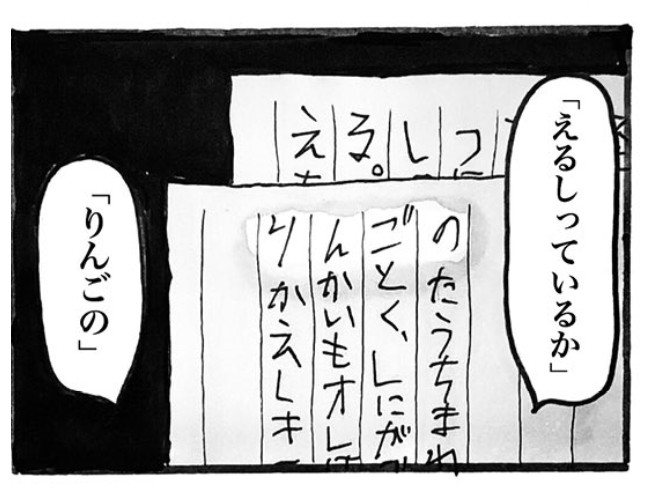 「えるしっているか」
つ
し
る。
え
のたうちまわ
ごとく、しにが
んかいもオレ
りかえしキ
「りんごの」